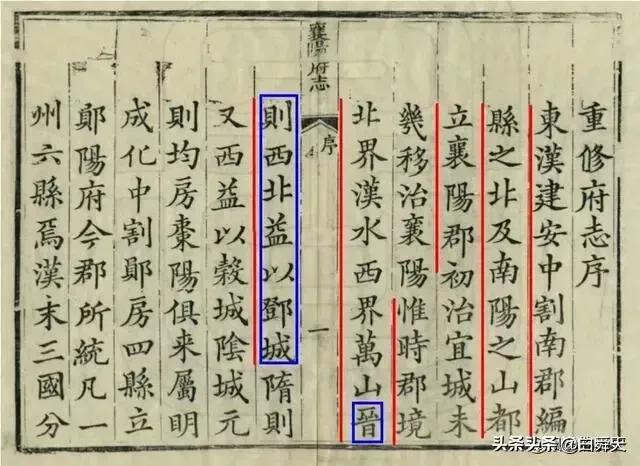 重修府志序
東漢建安中割南郡編
縣之北及南陽之山都
立襄陽郡初治宜城未
幾移治襄陽惟時郡境
北界漢水西界萬山晉
襄陽府志
序
一
則西北益以鄧城隋則
又西益以穀城陰城元
則均房棗陽俱来屬明
成化中割鄖房四縣立
鄖陽府今郡所統凡一
州六縣焉漢末三國分
头条